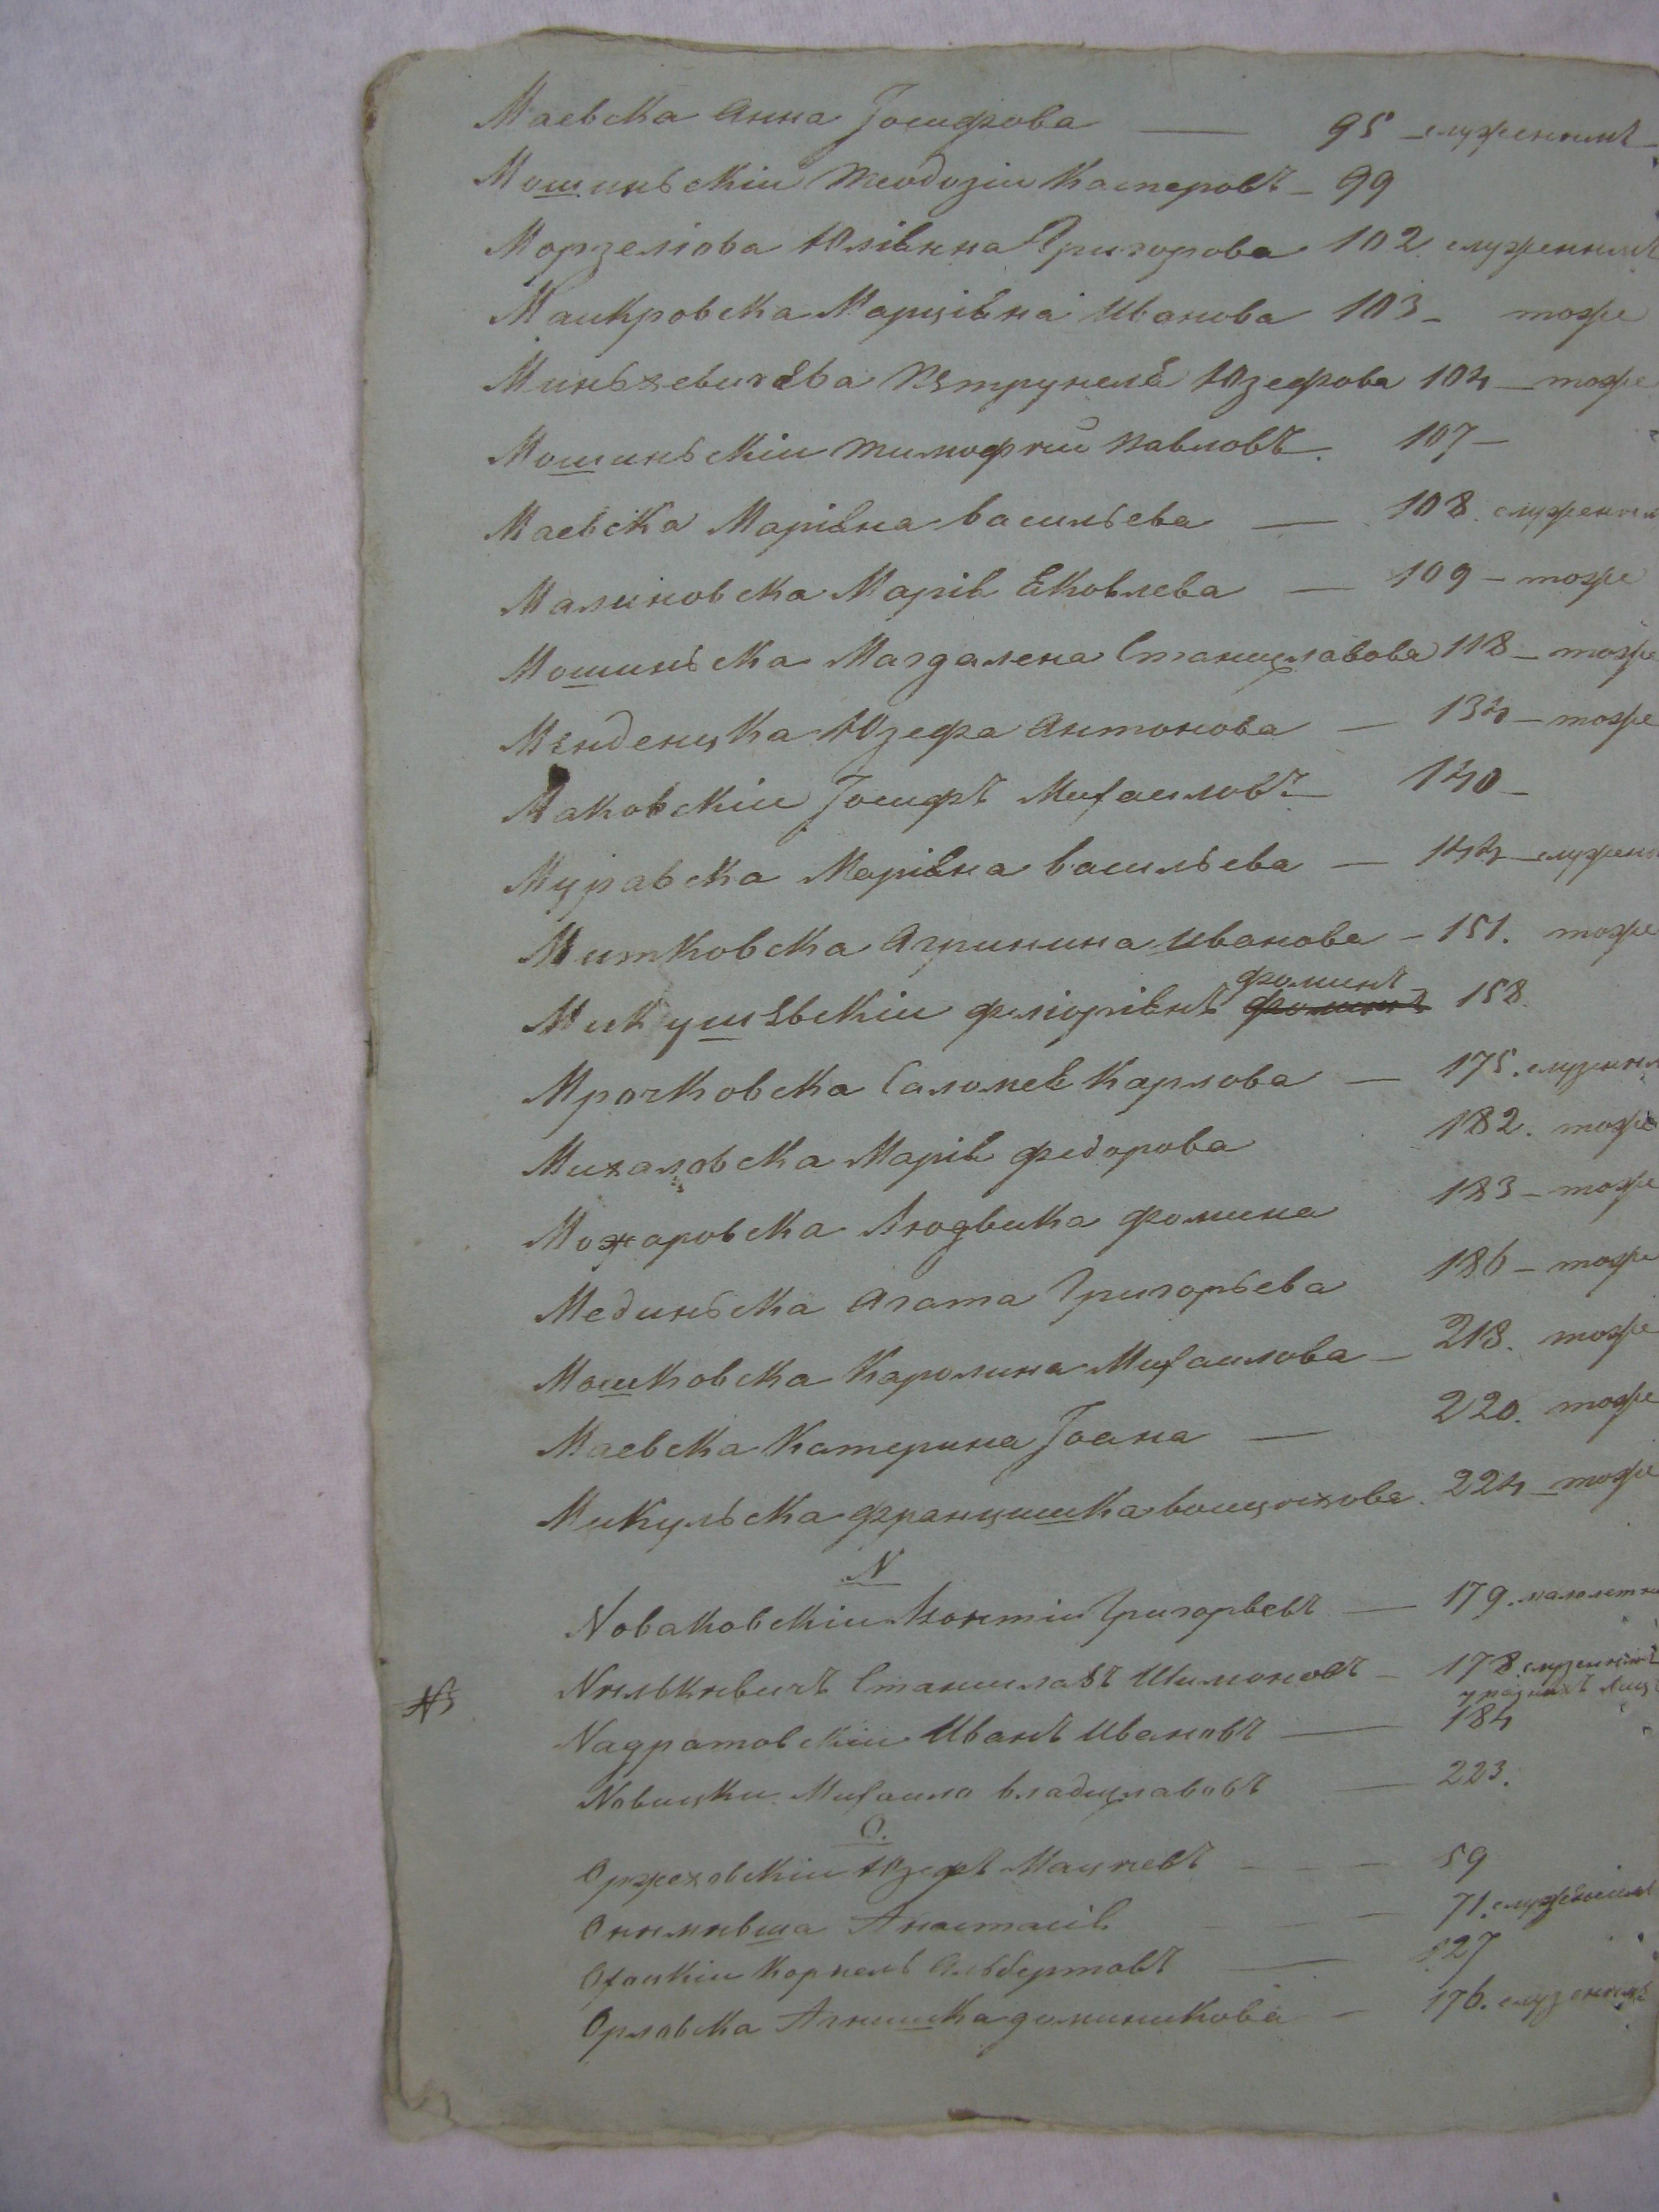 Маевска Анна Іосифова — 95 — служеницъ
Мошинскій Теодозій Касперовъ — 99
Морзеліова Юліянна Григорова 102 служеницъ
Маикровска Марціяна Иванова 103 — тоже
Миньхевичева Петрунеля Юзефова 104 — тоже
Мошиньскій Тимофей Павловъ. 107 —
Маевска Маріяна Васильева — 108. служениц
Малиновска Марія Яковлева — 109 — тоже
Мошиньска Магдалена Станиславова 118 — тоже
Менденцка Юзефа Антонова — 134 — тоже
Маковскіи Іосифъ Михаиловъ — 140 —
Муравска Маріяна Васильева — 144 — служени
Митковска Агрипина Иванова — 151. тоже
Микушевскіи Флоріянъ Фоминъ 158.
Мрочковска Саломея Карлова — 175. служениц
Михаловска Марія Федорова 182. тоже
Можаровска Людвика Фомина 183 — тоже
Мединьска Агата Григорьева 186 — тоже
Мошковска Каролина Михаилова — 218. тоже
Маевска Катерина Іоана — 220. тоже
Микульска Францишка Воицехова. 224 — тоже
N
Nоваковскіи Григорьевъ — 179. малолетн
Станиславъ Шимоновъ — 178.
Nадратовскіи Иванъ Ивановъ — 184
Nовицки Михаило Владиславовъ — 223.
О.
Оржеховскіи Юзефъ Мацеевъ — — — 59
Анастасія — — 71.
Корнель Альбертовъ — 127
Орловска Агнишка Доминикова — 176. служениц